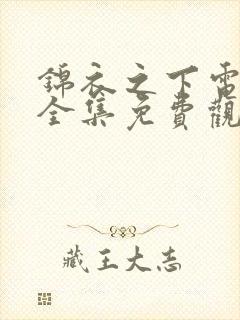 錦衣之下電
全集免費觀
藏王大志